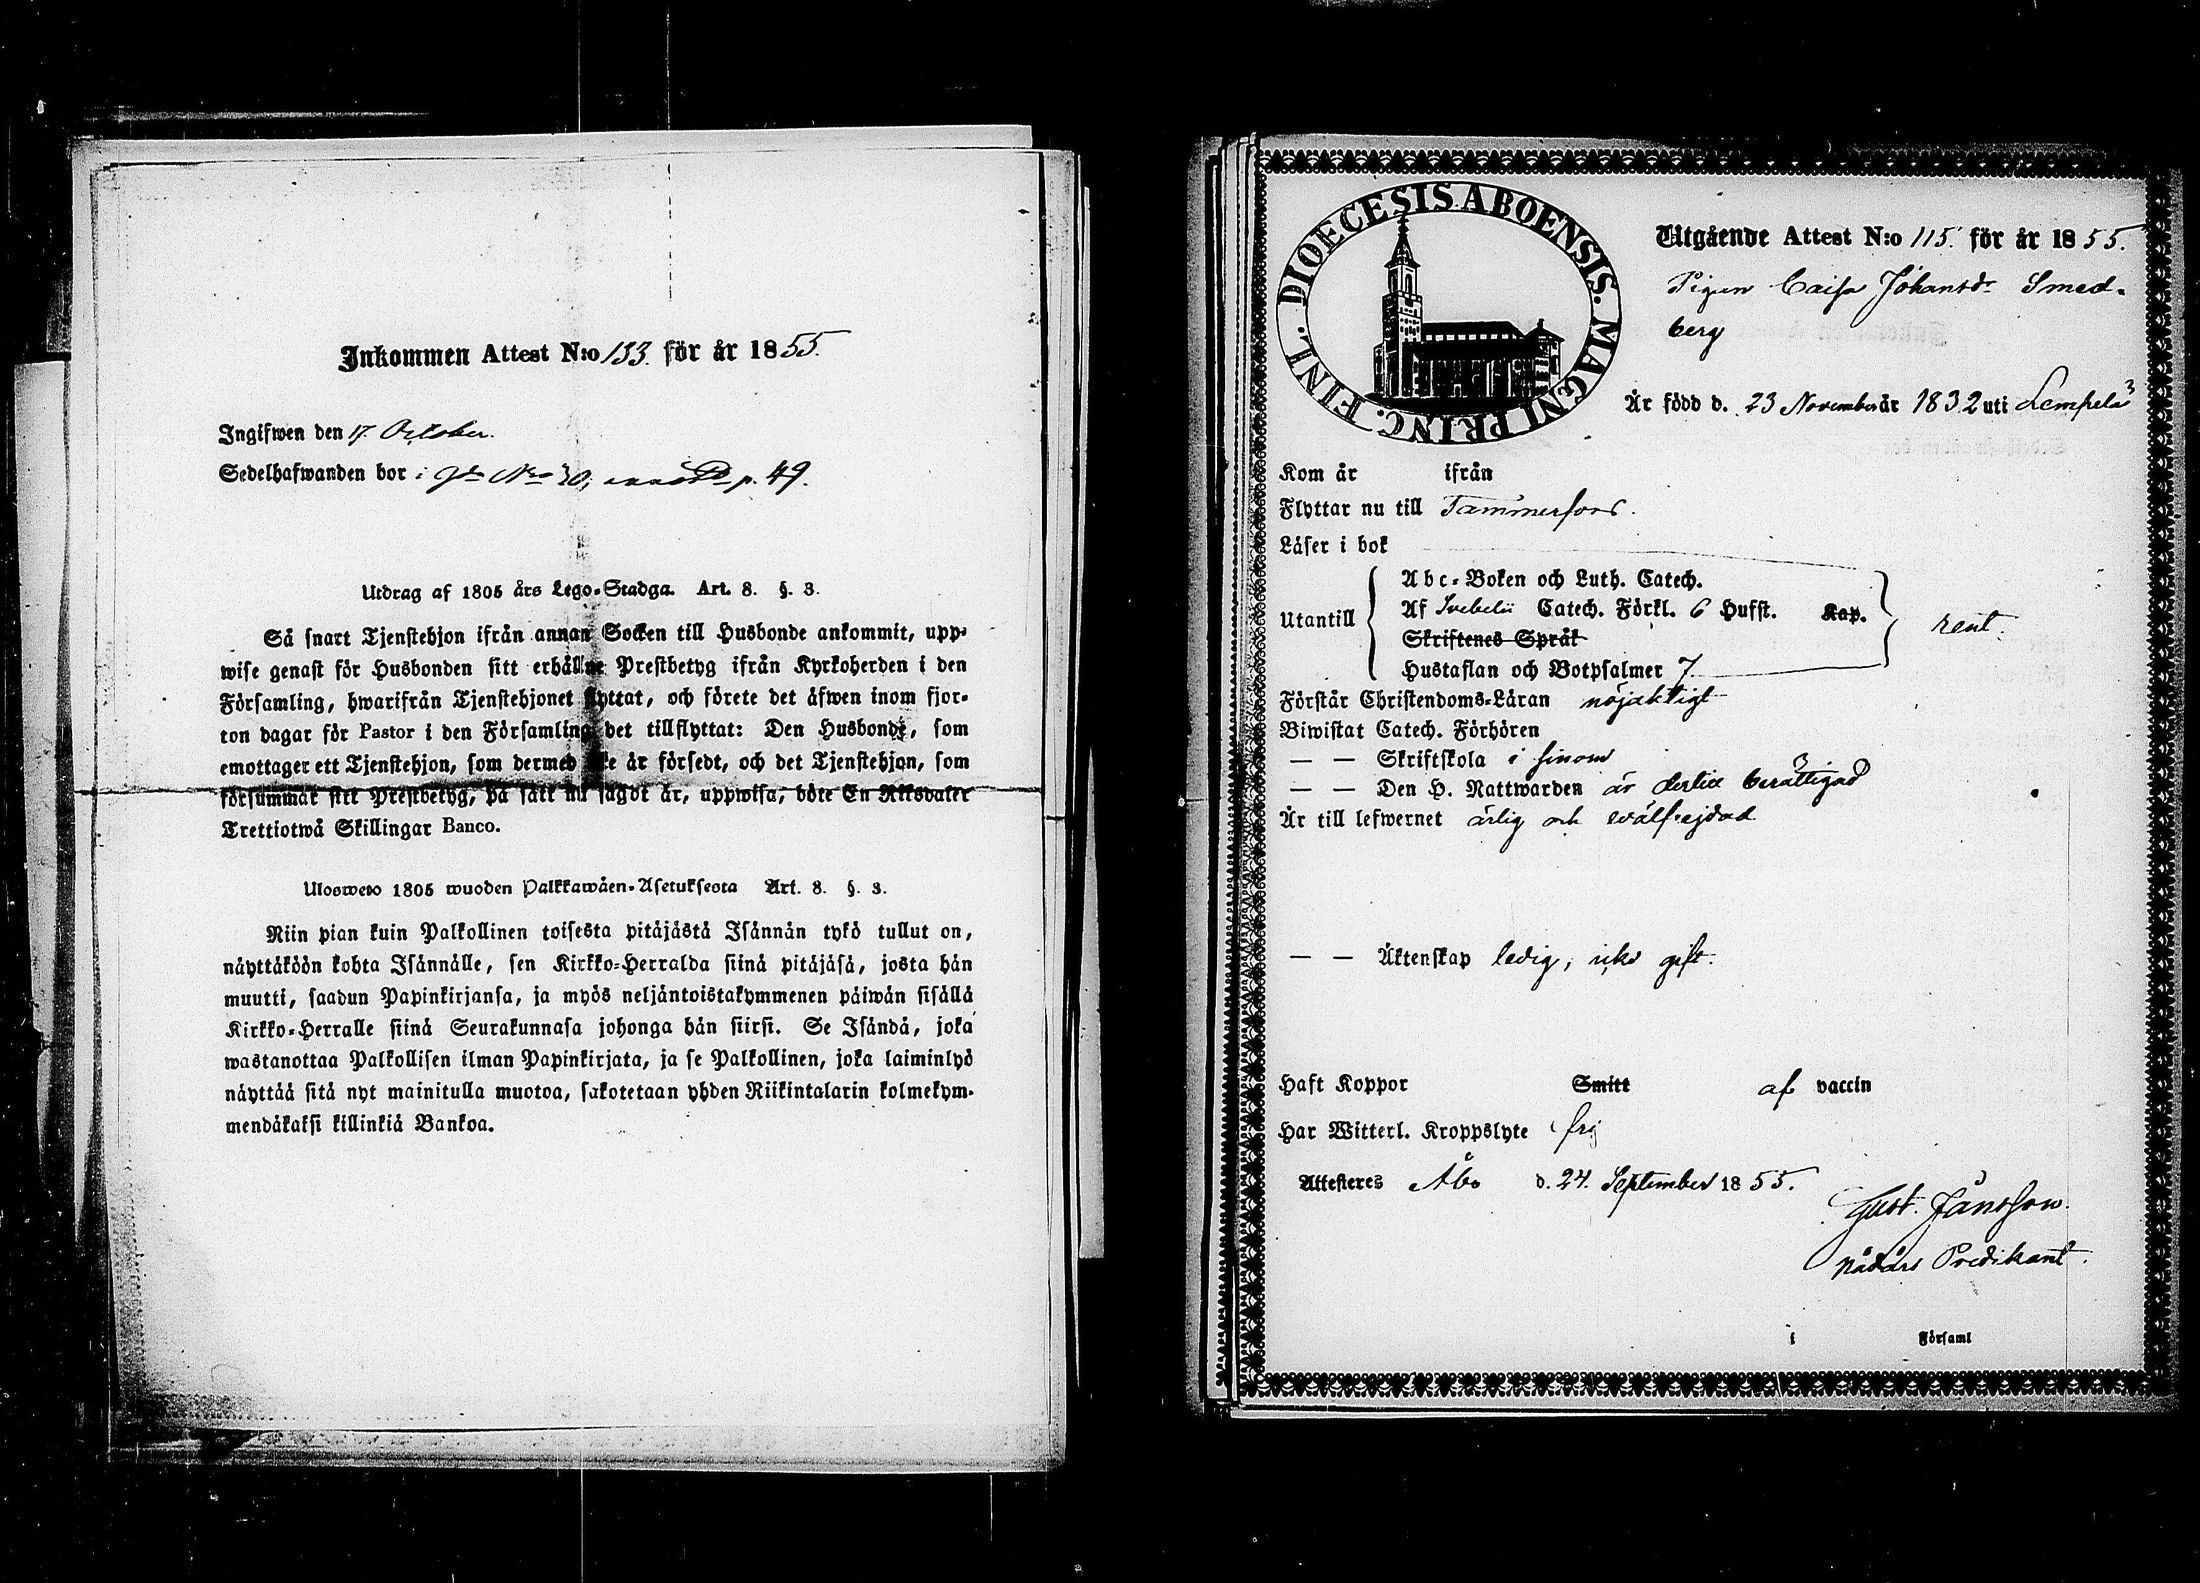 Inkommen Attest N:o 133. för år 1855.
Ingifwen den 17. October.
Sedelhafwanden bor i Gdn Nro 30, p. 49.
Utdrag af 1805 års Lego-Stadga. Art. 8. §. 3.
Så snart Tjenstehjon ifrån annan Socken till Husbonde ankommit, upp-
wise genast för Husbonden sitt erhållne Prestbetyg ifrån Kyrkoherden i den
Församling, hwarifrån Tjenstehjonet flyttat, och förete det äfwen inom fjor-
ton dagar för Pastor i den Församling det tillflyttat: Den Husbonde, som
emottager ett Tjenstehjon, som dermed icke är försedt, och det Tjenstehjon, som
försummar sitt Prestbetyg, på sätt nu sagdt är, uppwisa, böte En Riksdaler
Trettiotwå Skillingar Banco.
Ulosweto 1805 wuoden Palkkawäen-Asetuksesta Art. 8. §. 3.
Niin pian kuin Palkollinen toisesta pitäjästä Isännän tykö tullut on,
näyttäköön kohta Isännälle, sen Kirkko-Herralda siinä pitäjäsä, josta hän
muutti, saadun Papinkirjansa, ja myös neljäntoistakymmenen päiwän sisällä
Kirkko-Herralle siinä Seurakunnasa johonga hän siirsi. Se Isändä, joka
wastanottaa Palkollisen ilman Papinkirjata, ja se Palkollinen, joka laiminlyö
näyttää sitä nyt mainitulla muotoa, sakotetaan yhden Riikintalarin kolmekym-
mendäkaksi killinkiä Bankoa.
DIOECESIS ABOENSIS. MAGNI PRINC. FINL.
Utgående Attest N:o 115. för år 1855.
Pigan Caisa Johansdr Smed-
berg
Är född d. 23 November år 1832 uti Lempelä
Kom år ifrån
Flyttar nu till Tammerfors.
Läser i bok
Abc-Boken och Luth. Catech.
Utantill Af Svebelii Catech. Förkl. 6 Hufst. Kap. rent.
Skriftenes Språk
Hustaflan och Botpsalmer 7
Förstår Christendoms-Läran nöjaktigt
Biwistat Catech. Förhören
— — Skriftskola i sinom
— — Den H. Nattwarden är dertill berättigad
Är till lefwernet ärlig och wälfrejdad
— — Äktenskap ledig, icke gift.
Haft Koppor Smitt af vaccin
Har Witterl. Kroppslyte frij
Attesteres Åbo d. 24. September 1855.
Gust. Jansson.
nådårs Predikant.
i Församl